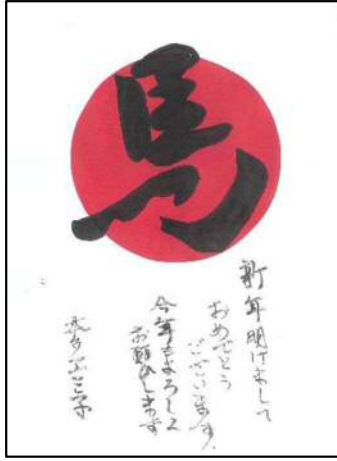 馬
新年明けまして
おめでとう
ございます。
今年もよろしく
お願いします